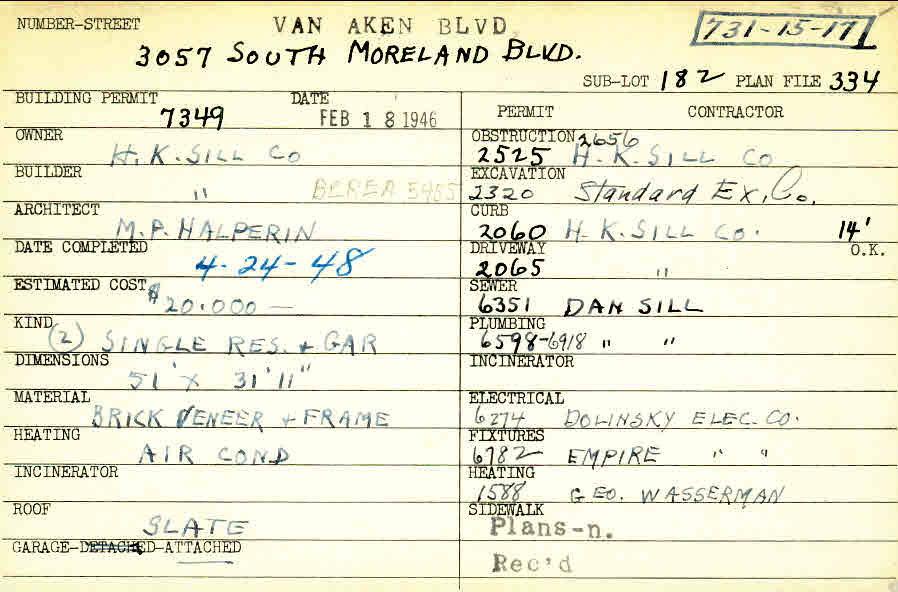 NUMBER-STREET VAN AKEN BLVD 731-15-17
3057 SOUTH MORELAND BLVD.
SUB-LOT 182 PLAN FILE 334
BUILDING PERMIT 7349 DATE FEB 18 1946
OWNER H. K. SILL CO
BUILDER " BEREA 5455
ARCHITECT M. P. HALPERIN
DATE COMPLETED 4-24-48
ESTIMATED COST $20.000—
KIND (2) SINGLE RES. + GAR
DIMENSIONS 51' x 31'11"
MATERIAL BRICK VENEER + FRAME
HEATING AIR COND
INCINERATOR
ROOF SLATE
GARAGE-DETACHED-ATTACHED
PERMIT CONTRACTOR
OBSTRUCTION 2656
2525 H. K. SILL CO
EXCAVATION
2320 Standard Ex. Co.
CURB
2060 H. K. SILL CO. 14'
DRIVEWAY O.K.
2065 "
SEWER
6351 DAN SILL
PLUMBING
6598-6918 " "
INCINERATOR
ELECTRICAL
6274 DOLINSKY ELEC. CO.
FIXTURES
6782 EMPIRE " "
HEATING
1588 GEO. WASSERMAN
SIDEWALK
Plans-n.
Rec'd